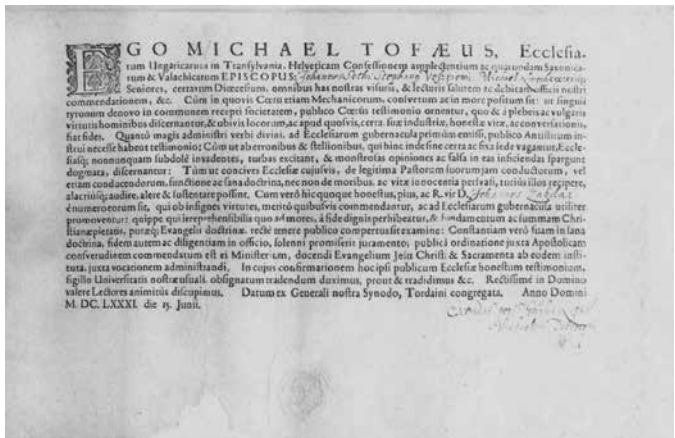 EGO MICHAEL TOFÆUS, Ecclesia-
rum Ungaricarum in Transylvania, Helveticam Confessionem amplectentium ac quarundam Saxonica-
rum & Valachicarum EPISCOPUS,
Seniores, certarum Diœcesium, omnibus has nostras visuris, & lecturis salutem ac debitam officii nostri
commendationem, &c. Cùm in quovis Cœtu etiam Mechanicorum, consvetum ac in more positum sit: ut singuli
tyronum denovo in communem recepti societatem, publico Cœtus testimonio ornentur, quo & à plebeis ac vulgaris
virtutis hominibus discernantur, & ubivis locorum, ac apud quosvis, certa suæ industriæ, honestæ vitæ, ac conversationis,
fiat fides. Quantò magis administri verbi divini, ad Ecclesiarum gubernacula primùm emissi, publico Antistitum in-
struì necesse habent testimonio; Cùm ut ab erronibus & stellionibus, qui hinc inde sine certa ac fixa sede vagantur, Eccle-
siasq; nonnunquam subdolè invadentes, turbas excitant, & monstrosas opiniones ac falsa in eas inficiendas spargunt
dogmata, discernantur: Tùm ut concives Ecclesiæ cujusvis, de legitima Pastorum suorum jam conductorum, vel
etiam conducendorum, functione ac sana doctrina, nec non de moribus, ac vitæ innocentia persvasi, tutius illos recipere,
alacriusq; audire, alere & sustentare possint. Cum verò hic quoque honestus, pius, ac R. vir D. Johannes
è numero eorum sit, qui ob insignes virtutes, meritò quibusvis commendantur, ac ad Ecclesiarum gubernacula utiliter
promoventur: quippe qui irreprehensibilis quo ad mores, à fide dignis perhibeatur, & fundamentum ac summam Chri-
stianæ pietatis, puræq; Evangelii doctrinæ, rectè tenere publico compertus sit examine: Constantiam verò suam in sana
doctrina, fidem autem ac diligentiam in officio, solenni promiserit juramento; publicâ ordinatione juxta Apostolicam
consvetudinem commendatum est ei Ministerium, docendi Evangelium Jesu Christi & Sacramenta ab eodem insti-
tuta, juxta vocationem administrandi. In cujus confirmationem hoc ipsi publicum Ecclesiæ honestum testimonium,
sigillo Universitatis nostræ usuali, obsignatum tradendum duximus, prout & tradidimus &c. Rectissimè in Domino
valere Lectores animitùs discupimus. Datum ex Generali nostra Synodo, Tordaini congregata. Anno Domini
M. DC. LXXXI. die 15. Junii.